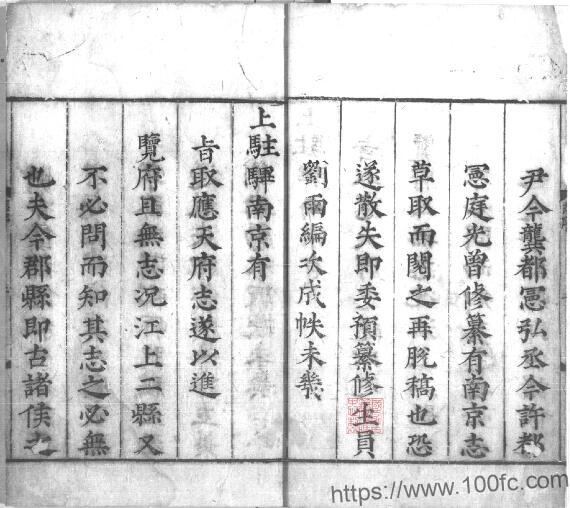 尹今龔都憲弘丞今許都
憲庭光曾修纂有南京志
草取而閱之再脫稿也恐
遂散失即委預纂修生員
劉雨編次成帙未幾
上駐驆南京有
旨取應天府志遂以進
覽府且無志况江上二縣又
不必問而知其志之必無
也夫今郡縣即古諸侯之
https://www.100fc.com